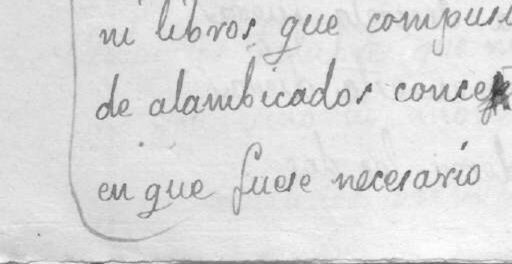 ni libros que compusi
de alambicados conce
en que fuese necesario